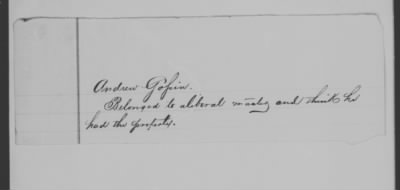 Andrew Gofein.
Belonged to a liberal master and think he
had the property.